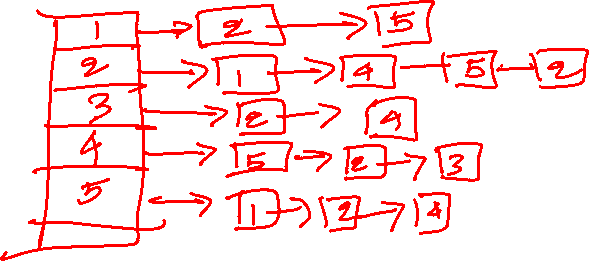 1 2 5
2 1 4 5 2
3 2 4
4 5 2 3
5 1 2 4